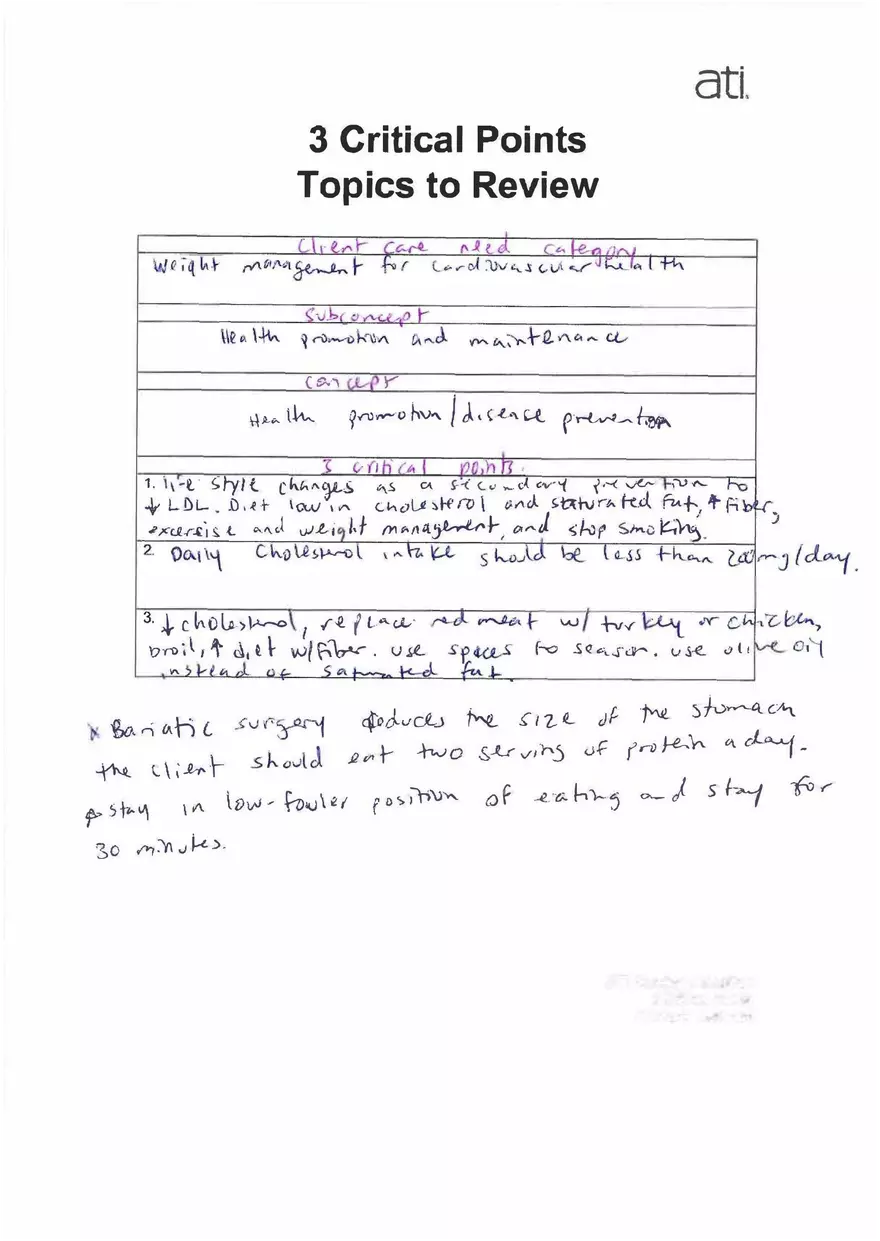 ati.
3 Critical Points
Topics to Review
Client care need category
Weight management for cardiovascular health
Subconcept
Health promotion and maintenance
Concept
Health promotion/disease prevention
3 critical points.
1. life style changes as a secondary prevention to
↓ LDL. Diet low in cholesterol and staturated fat, ↑ Fiber,
excersise and weight management, and stop smoking.
2. Daily Cholesterol intake should be less than 200mg/day.
3. ↓ cholesterol, replace red meat w/ turkey or chicken,
broil, ↑ diet w/fiber. use spaces to season. use olive oil
instead of saturated fat.
* Bariatic surgery reduces the size of the stomach
the client should eat two serving of protein a day.
stay in low-fowler position of eating and stay for
30 minutes.